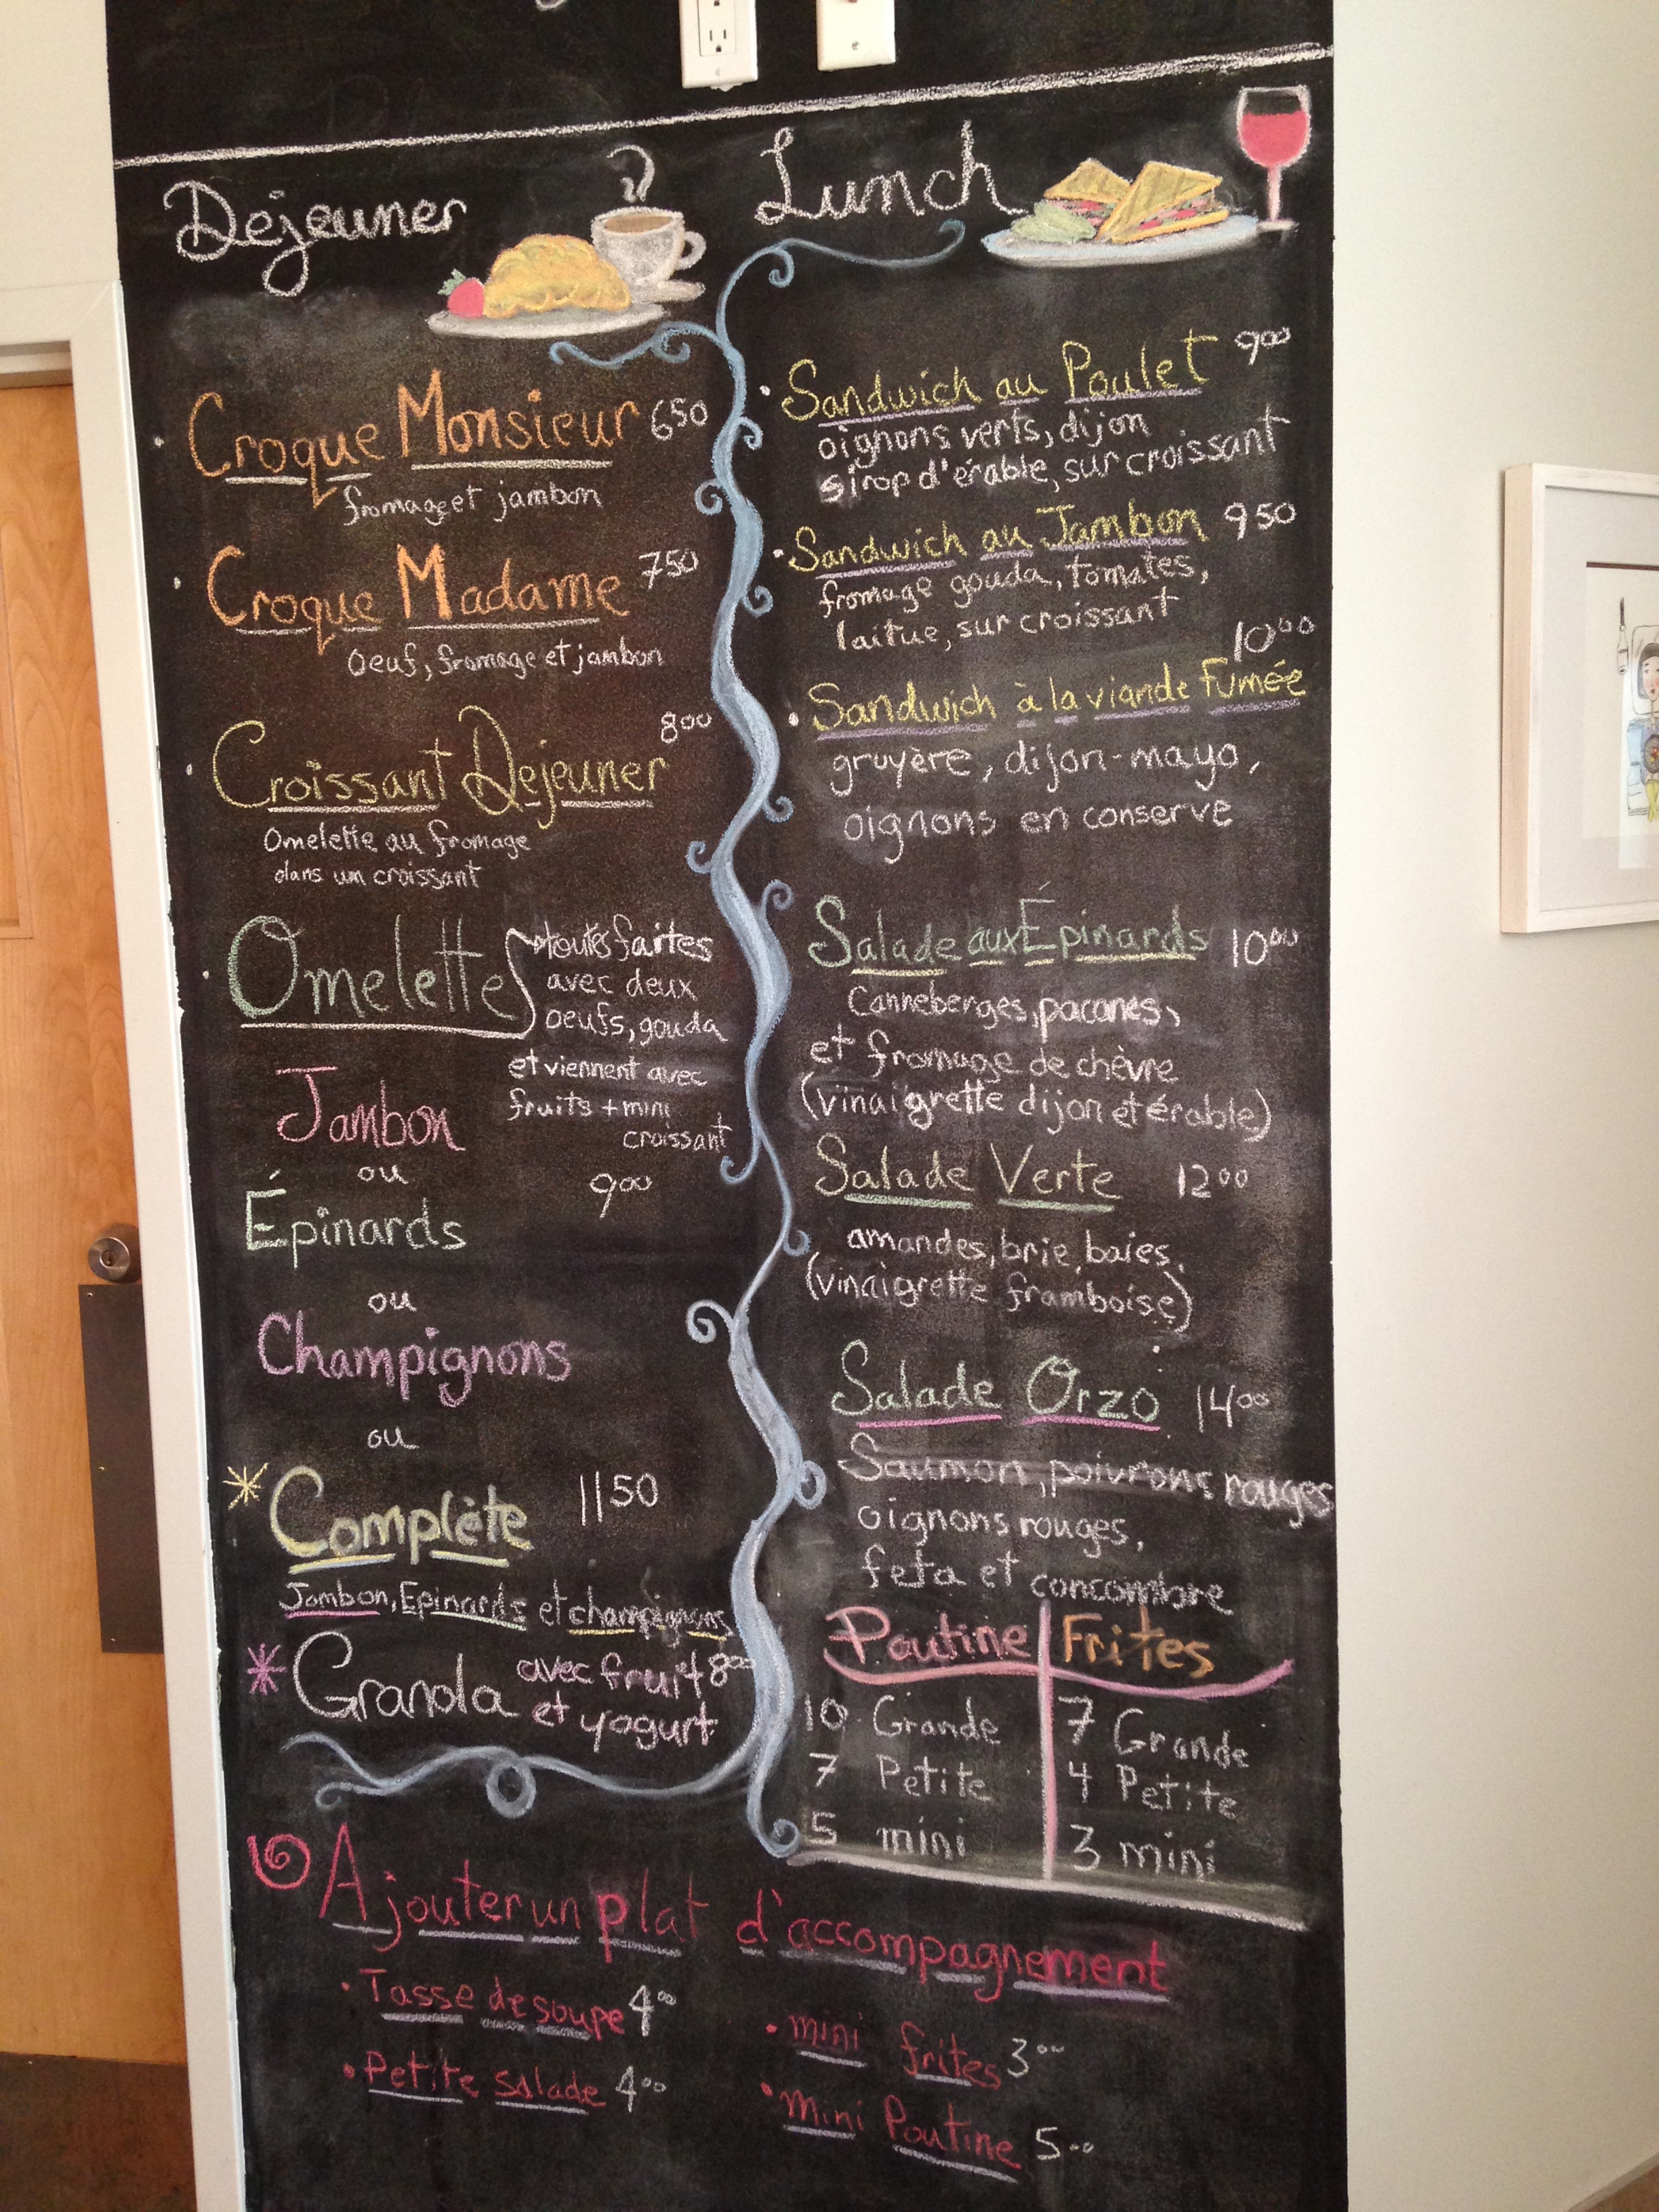 Dejeuner
Croque Monsieur 6.50
fromage et jambon
Croque Madame 7.50
Oeuf, fromage et jambon
8.00
Croissant Dejeuner
Omelette au fromage
dans un croissant
Omelette
toutes faites
avec deux
oeufs, gouda
et viennent avec
fruits + mini
croissant
9.00
Jambon
ou
Épinards
ou
Champignons
ou
Complète 11.50
Jambon, Epinards et champignons
Granola avec fruit 8.00
et yogurt
Lunch
Sandwich au Poulet 9.00
oignons verts, dijon
sirop d'érable, sur croissant
Sandwich au Jambon 9.50
fromage gouda, tomates,
laitue, sur croissant
10.00
Sandwich à la viande Fumée
gruyère, dijon-mayo,
oignons en conserve
Salade aux Épinards 10.00
Canneberges, pacanes,
et fromage de chèvre
(vinaigrette dijon et érable)
Salade Verte 12.00
amandes, brie, baies,
(vinaigrette framboise)
Salade Orzo 14.00
Saumon, poivrons rouges
oignons rouges,
feta et concombre
Poutine Frites
10 Grande 7 Grande
7 Petite 4 Petite
5 mini 3 mini
Ajouter un plat d'accompagnement
• Tasse de soupe 4.00
• Petite salade 4.00
• mini frites 3.00
• Mini Poutine 5.00